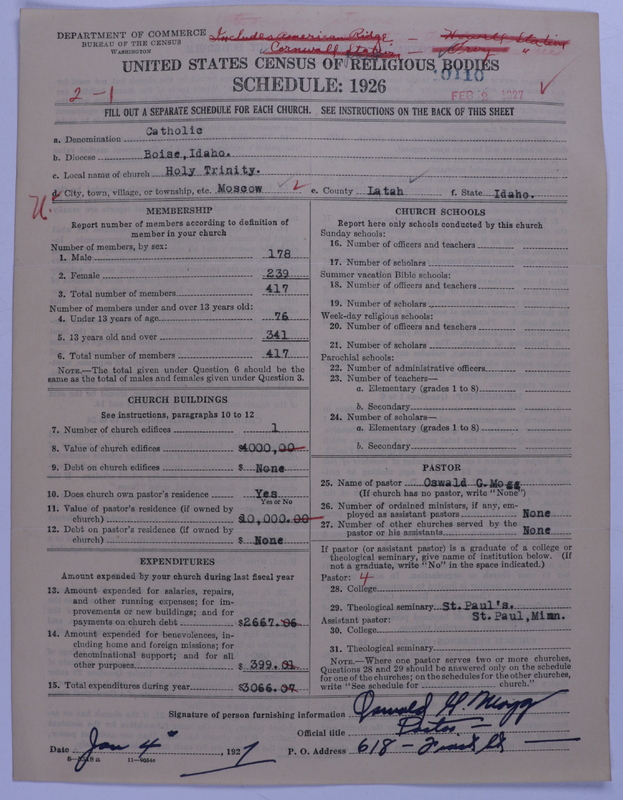 DEPARTMENT OF COMMERCE
BUREAU OF THE CENSUS
WASHINGTON
Includes American Ridge
Cornwall Station
Howells Station
Troy "
UNITED STATES CENSUS OF RELIGIOUS BODIES
SCHEDULE: 1926
2-1
FEB 2 1927
FILL OUT A SEPARATE SCHEDULE FOR EACH CHURCH. SEE INSTRUCTIONS ON THE BACK OF THIS SHEET
a. Denomination Catholic
b. Diocese Boise, Idaho.
c. Local name of church Holy Trinity.
d. City, town, village, or township, etc. Moscow e. County Latah f. State Idaho.
U.
MEMBERSHIP
Report number of members according to definition of
member in your church
Number of members, by sex:
1. Male 178
2. Female 239
3. Total number of members 417
Number of members under and over 13 years old:
4. Under 13 years of age 76
5. 13 years old and over 341
6. Total number of members 417
NOTE.—The total given under Question 6 should be
same as the total of males and females given under Question 3.
CHURCH BUILDINGS
See instructions, paragraphs 10 to 12
7. Number of church edifices 1
8. Value of church edifices $4000,00
9. Debt on church edifices $ None
10. Does church own pastor's residence Yes
Yes or No
11. Value of pastor's residence (if owned by
church) $10,000.00
12. Debt on pastor's residence (if owned by
church) $ None
EXPENDITURES
Amount expended by your church during last fiscal year
13. Amount expended for salaries, repairs,
and other running expenses; for im-
provements or new buildings; and for
payments on church debt $2667.06
14. Amount expended for benevolences, in-
cluding home and foreign missions; for
denominational support; and for all
other purposes $ 399.01
15. Total expenditures during year $3066.07
CHURCH SCHOOLS
Report here only schools conducted by this church
Sunday schools:
16. Number of officers and teachers
17. Number of scholars
Summer vacation Bible schools:
18. Number of officers and teachers
19. Number of scholars
Week-day religious schools:
20. Number of officers and teachers
21. Number of scholars
Parochial schools:
22. Number of administrative officers
23. Number of teachers—
a. Elementary (grades 1 to 8)
b. Secondary
24. Number of scholars—
a. Elementary (grades 1 to 8)
b. Secondary
PASTOR
25. Name of pastor Oswald G. Mogg
(If church has no pastor, write "None")
26. Number of ordained ministers, if any, em-
ployed as assistant pastors None
27. Number of other churches served by the
pastor or his assistants None
If pastor (or assistant pastor) is a graduate of a college or
theological seminary, give name of institution below. (If
not a graduate, write "No" in the space indicated.)
Pastor: 4
28. College
29. Theological seminary St. Paul's.
Assistant pastor: St. Paul, Minn.
30. College
31. Theological seminary
NOTE.—Where one pastor serves two or more churches,
Questions 28 and 29 should be answered only on the schedule
for one of the churches; on the schedules for the other churches,
write "See schedule for church."
Signature of person furnishing information Oswald G. Mogg
Official title Pastor
Date Jan 4" , 1927 P. O. Address 618 -